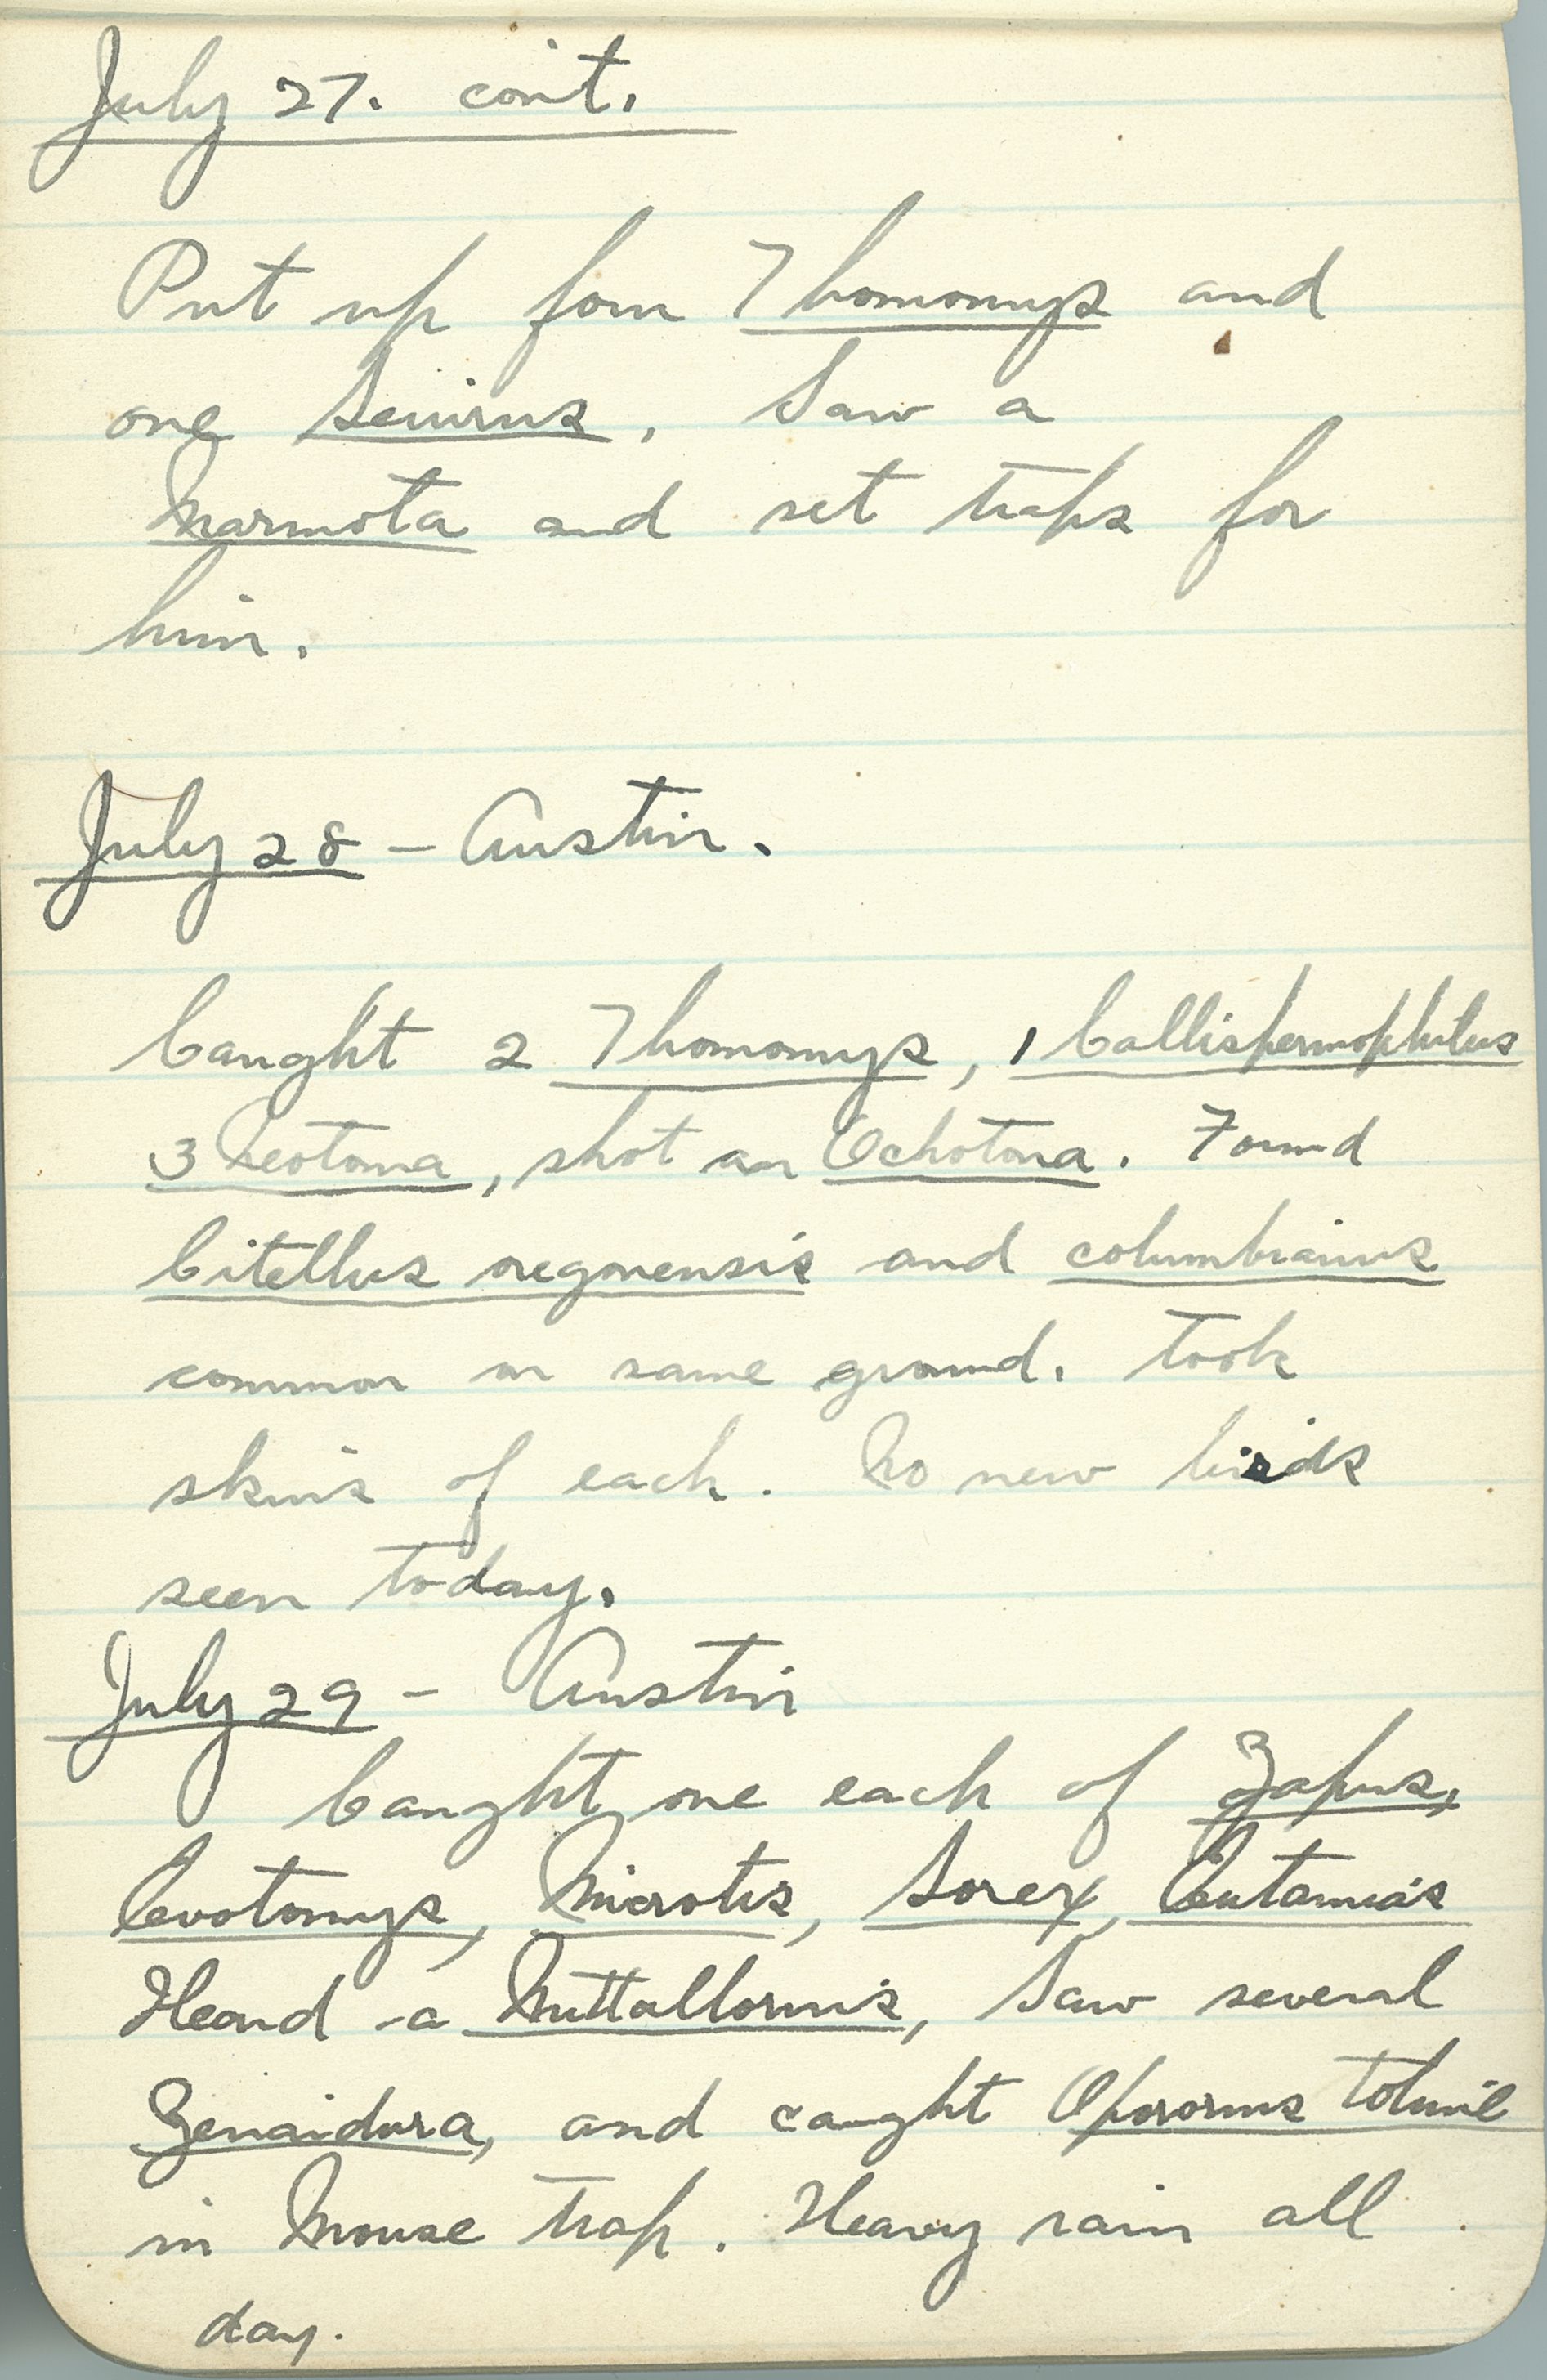 July 27. cont.
Put up four Thomomys and
one Sciurus. Saw a
Marmota and set traps for
him.
July 28 - Austin.
Caught 2 Thomomys, 1 Callispermophilus
3 Neotoma, shot an Ochotona. Found
Citellus oregonensis and columbianus
common on same ground. Took
skins of each. No new birds
seen today.
July 29 - Austin
Caught one each of Zapus,
Evotomys, Microtus, Sorex, Eutamias
Heard a Nuttallornis, Saw several
Zenaidura, and caught Oporornis tolmiei
in Mouse trap. Heavy rain all
day.